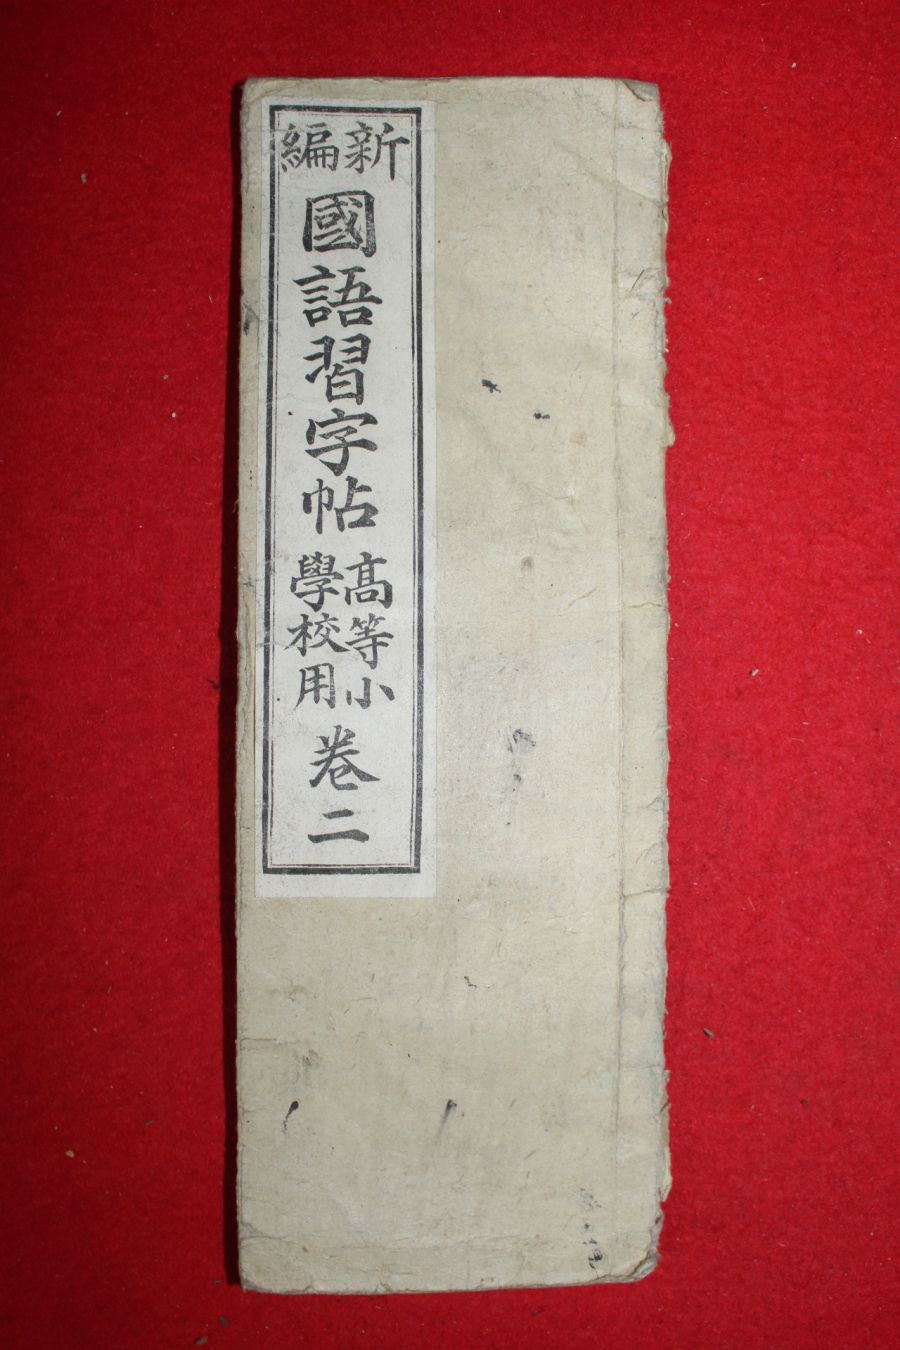 新編
國語習字帖
高等小
學校用
卷二